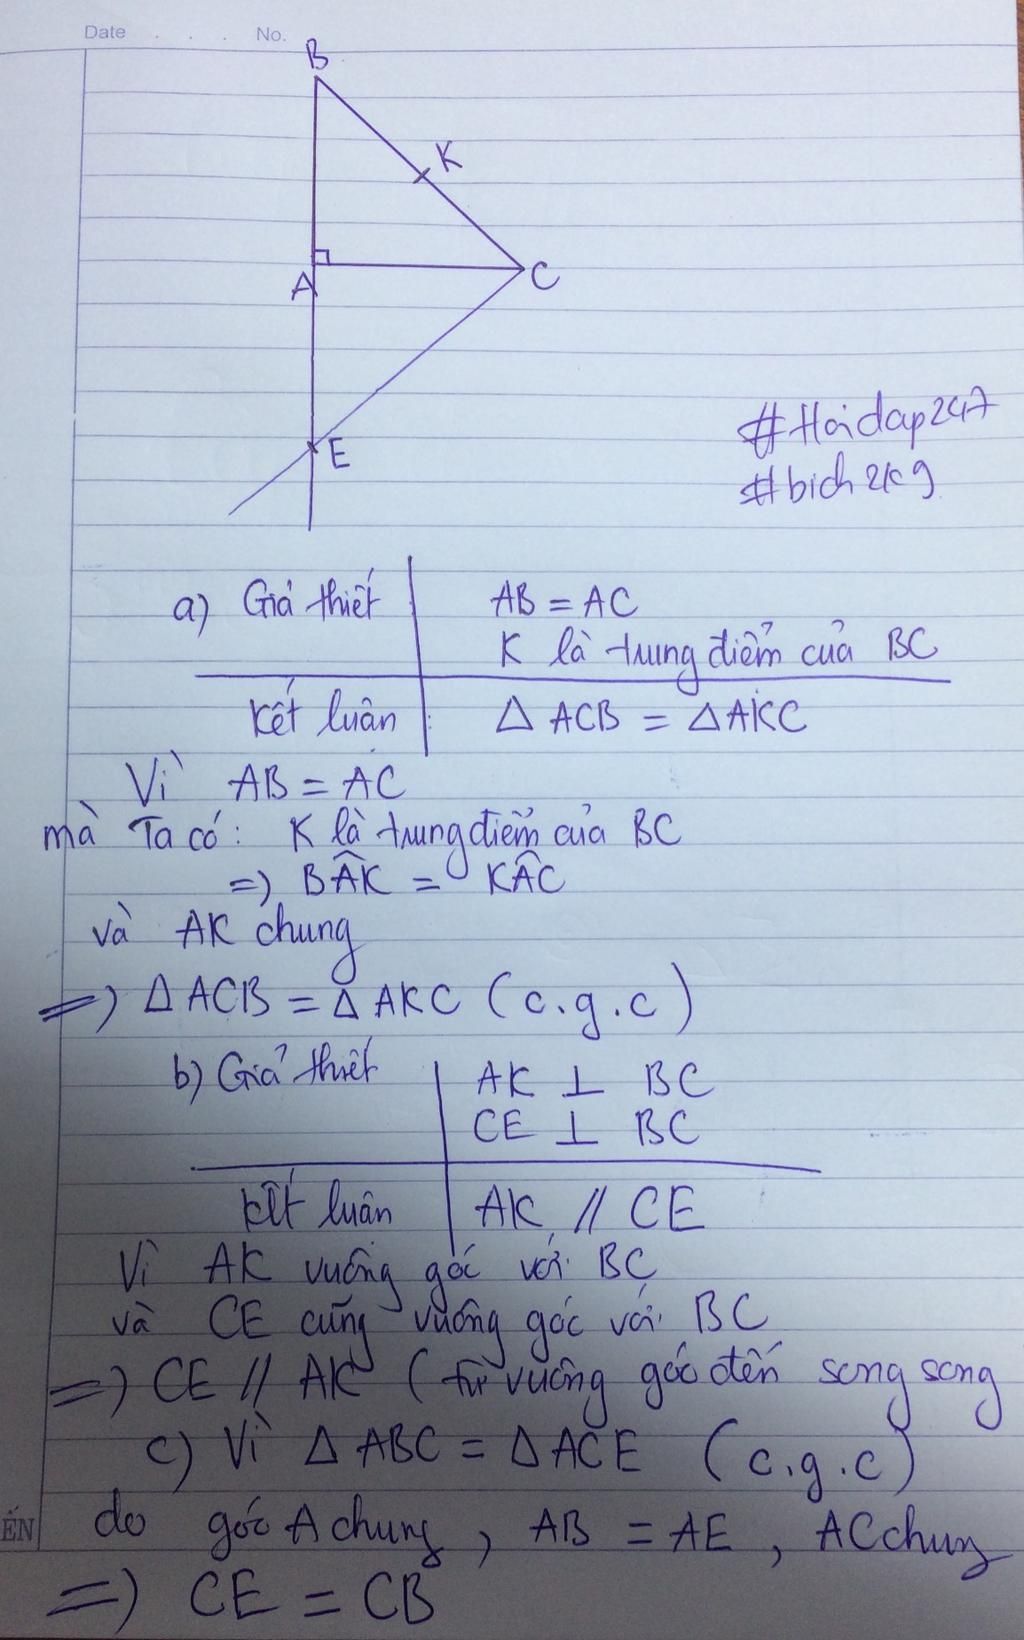 Date . . . No.
B
K
A
C
E
#Hoidap247
#bich2k9
a) Giả thiết AB = AC
K là trung điểm của BC
Kết luận : △ ACB = △ AKC
Vì AB = AC
mà Ta có: K là trung điểm của BC
=> BÂK = KÂC
và AK chung
=> △ ACB = △ AKC (c.g.c)
b) Giả thiết AK ⊥ BC
CE ⊥ BC
Kết luận AK // CE
Vì AK vuông góc với BC
và CE cũng vuông góc với BC
=> CE // AK (từ vuông góc đến song song
c) Vì △ ABC = △ ACE (c.g.c)
ẾN
do góc A chung, AB = AE, AC chung
=> CE = CB